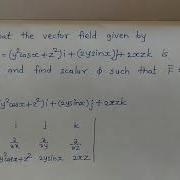 at the vector field given by
= (y²cosx+z²)i + (2ysinx)j + 2xzk is
and find scalar ϕ such that F̄ =
y²cosx+z²)i + (2ysinx)j + 2xzk
i j k
∂/∂x ∂/∂y ∂/∂z
y²cosx+z² 2ysinx 2xz